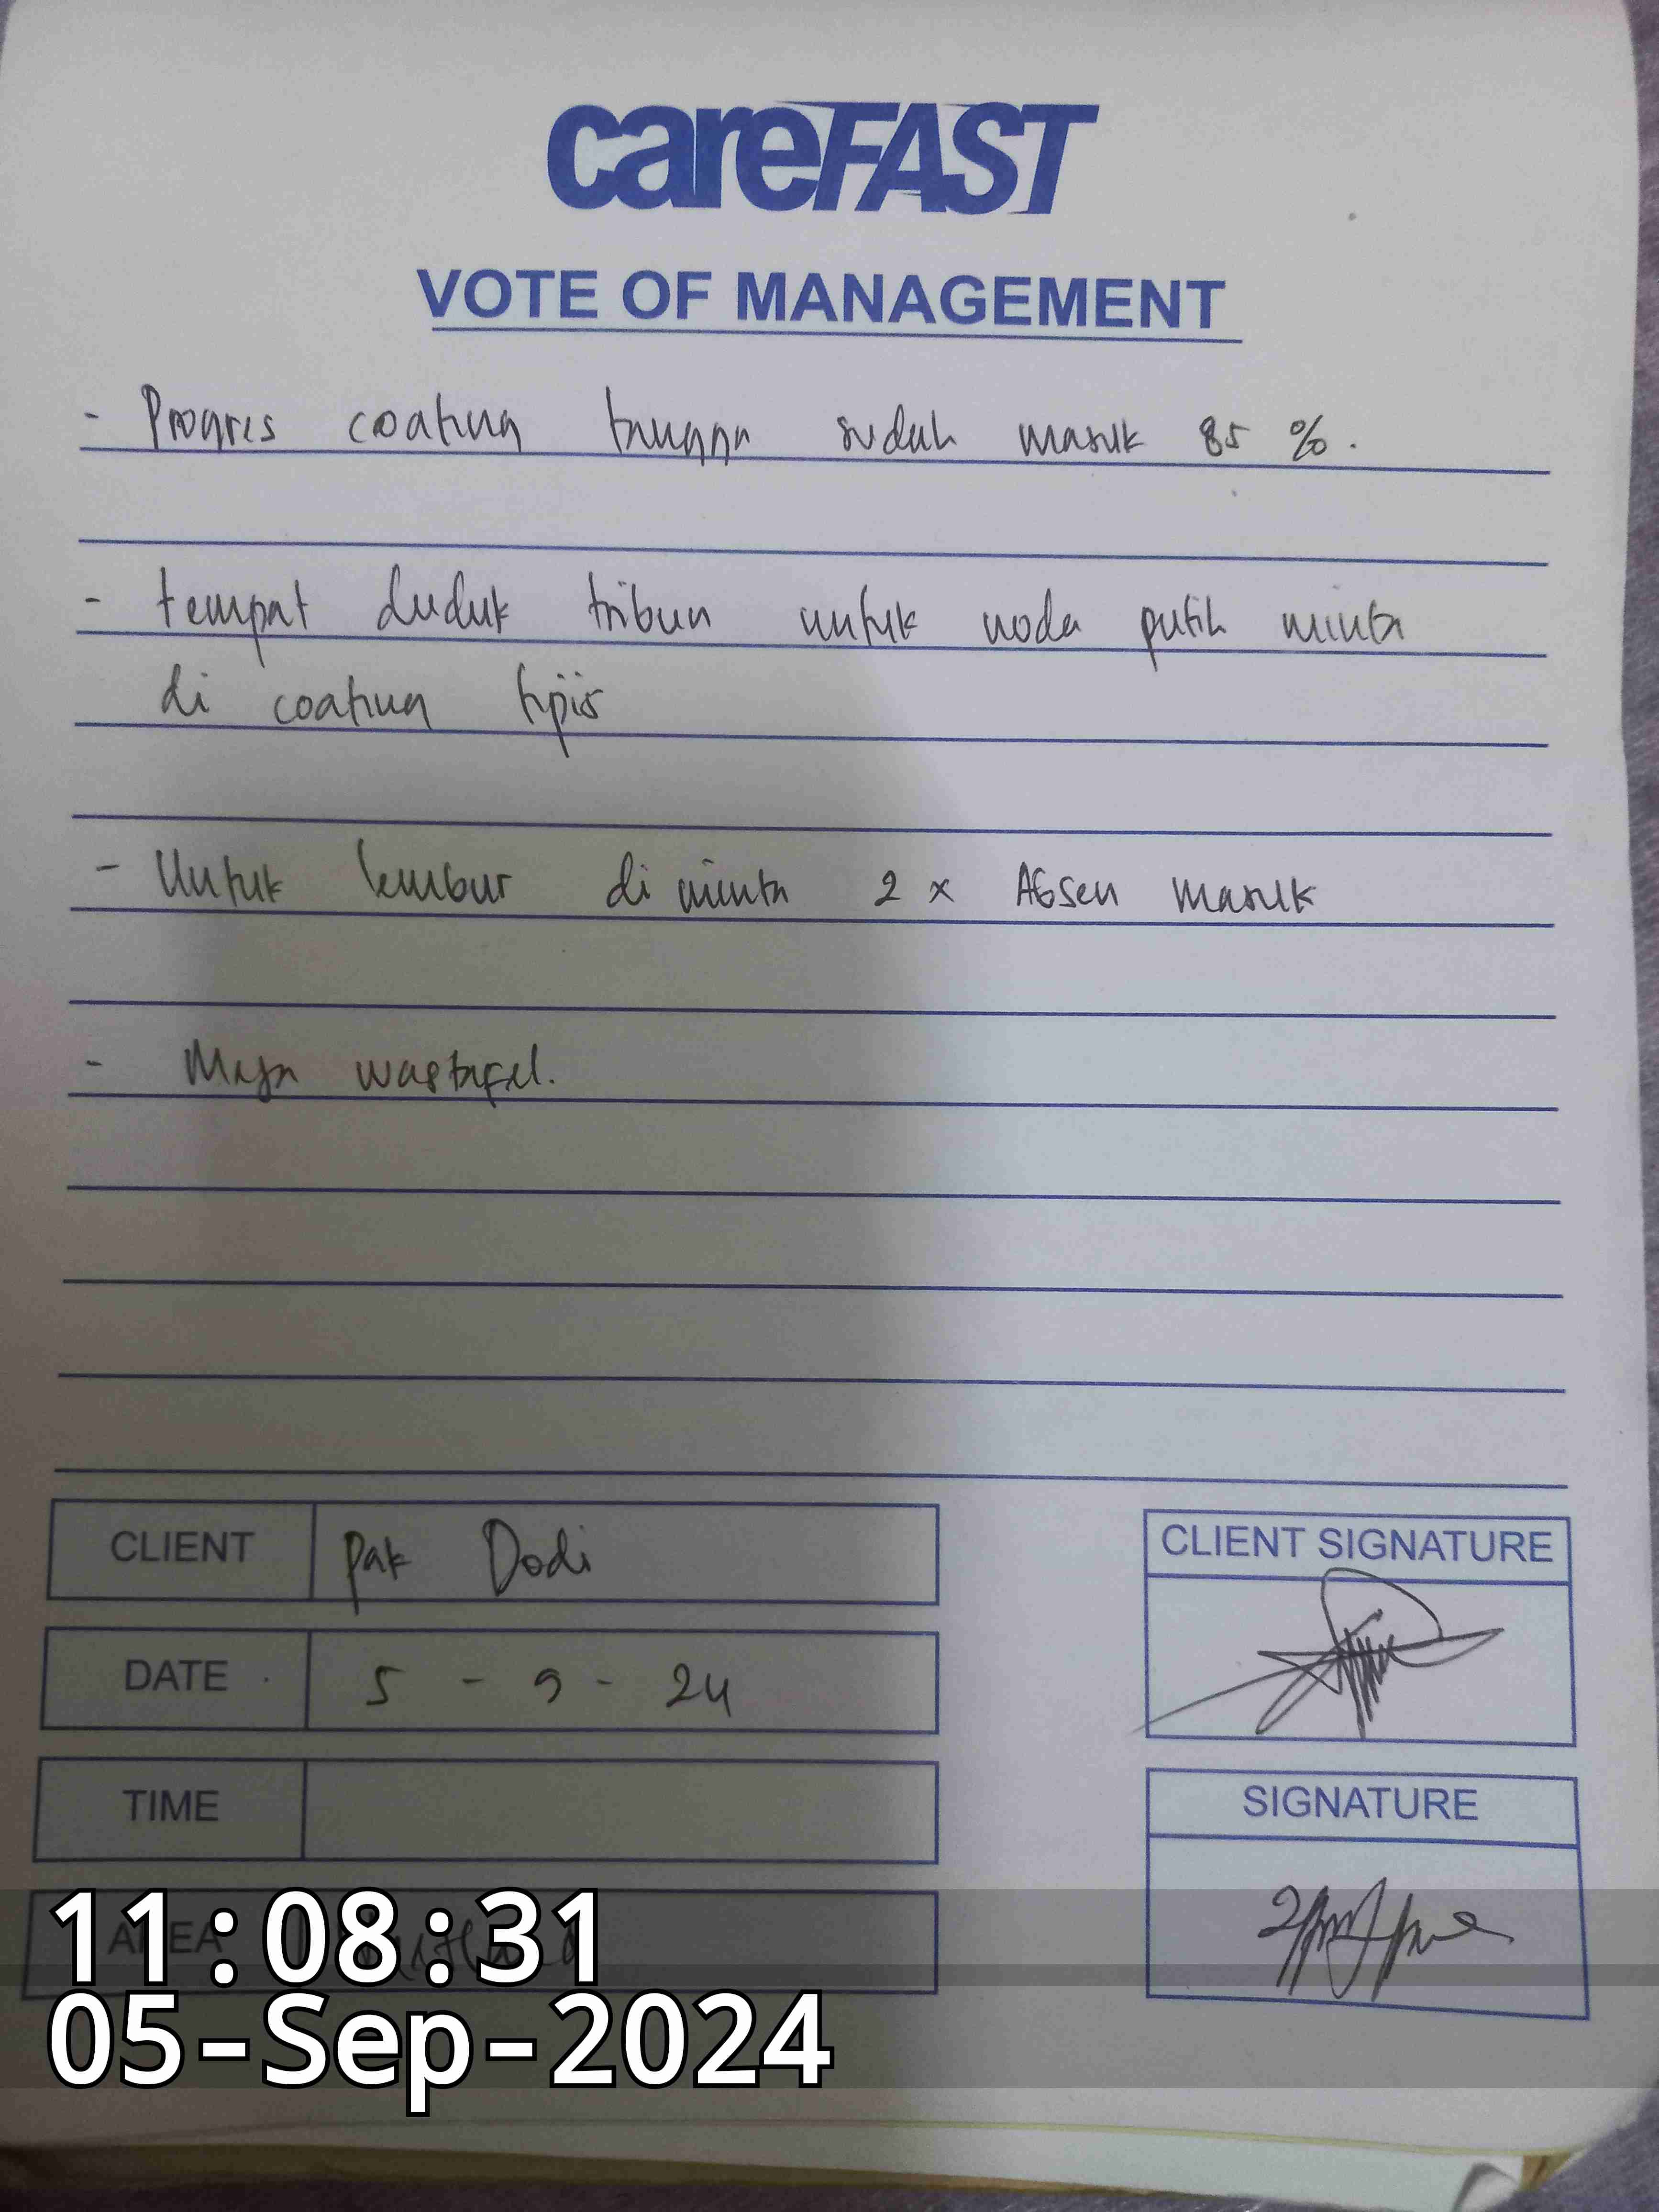 careFAST
VOTE OF MANAGEMENT
- Progres coating tangga sudah masuk 85 %.
- tempat duduk tribun untuk noda putih minta
di coating tipis
- Untuk lembur di minta 2 x Absen masuk
- Meja wastafel.
CLIENT Pak Dodi
DATE 5 - 9 - 24
TIME
AREA
CLIENT SIGNATURE
SIGNATURE
11:08:31
05-Sep-2024